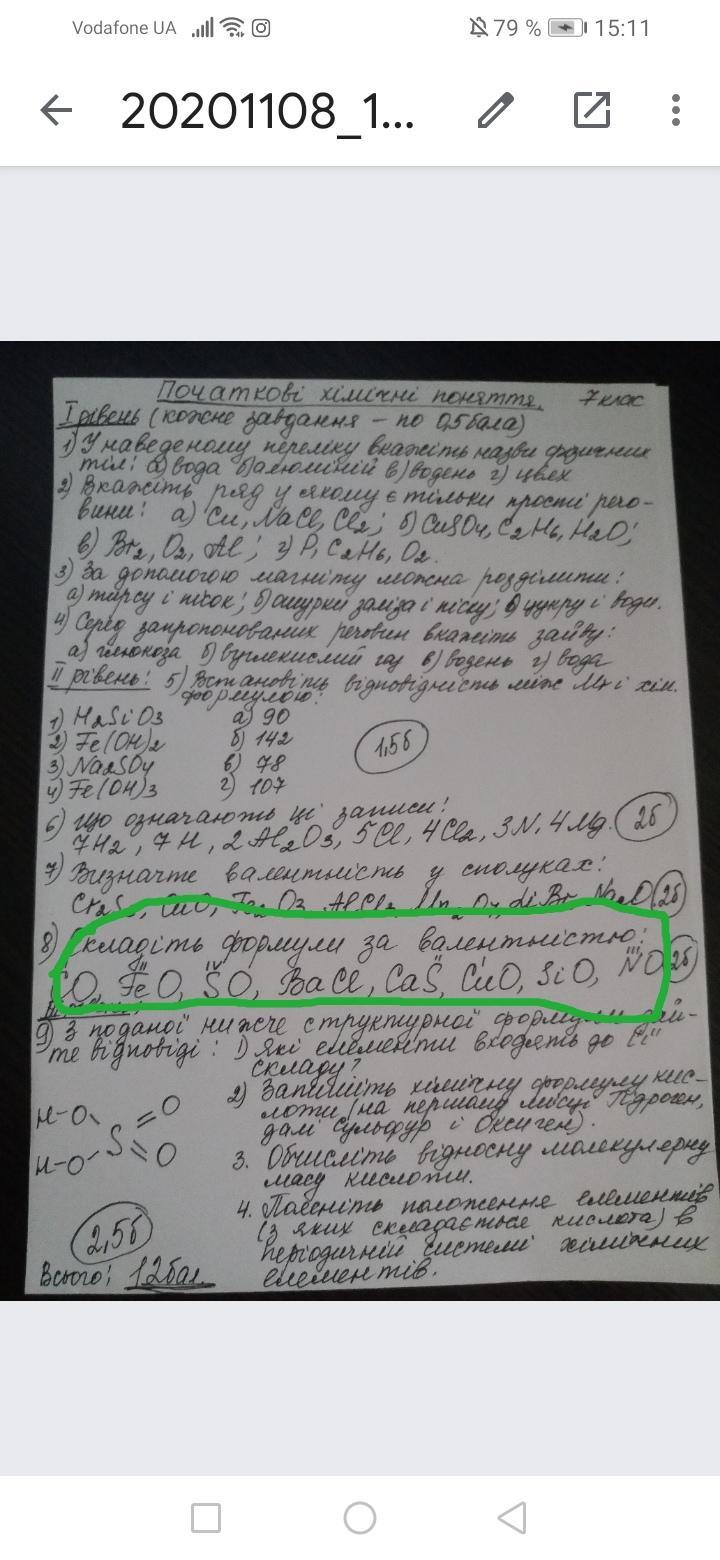 Vodafone UA 79 % 15:11
20201108_1...
Початкові хімічні поняття. 7 клас
І рівень (кожне завдання – по 0,5 бала)
1) У наведеному переліку вкажіть назви фізичних
тіл: а) вода б) алюміній в) водень г) цвях
2) Вкажіть ряд у якому є тільки прості речо-
вини: а) Cu, NaCl, Cl2; б) CuSO4, C2H6, H2O;
в) Br2, O2, Al; г) P, C2H6, O2.
3) За допомогою магніту можна розділити:
а) тирсу і пісок; б) ошурки заліза і піску; в) цукру і води.
4) Серед запропонованих речовин вкажіть зайву:
а) глюкоза б) вуглекислий газ в) водень г) вода
ІІ рівень: 5) Встановіть відповідність між Mr і хім.
формулою:
1) H2SiO3 а) 90
2) Fe(OH)2 б) 142
3) Na2SO4 в) 78
4) Fe(OH)3 г) 107
1,5б
6) Що означають ці записи:
7H2, 7H, 2Al2O3, 5Cl, 4Cl2, 3N, 4Mg. 2б
7) Визначте валентність у сполуках:
CuO, Fe2O3, AlCl3, Mn2O7, LiBr, Na2O 2б
8) Складіть формули за валентністю:
CO, FeO, SO, BaCl, CaS, CuO, SiO, NO 2б
II IV II III
9) З поданої нижче структурної формули дай-
те відповіді: 1) Які елементи входять до її
складу?
2) Запишіть хімічну формулу кис-
лоти (на першому місці Гідроген,
далі Сульфур і Оксиген).
3. Обчисліть відносну молекулярну
масу кислоти.
4. Поясніть положення елементів
(з яких складається кислота) в
періодичній системі хімічних
елементів.
H-O O
S
H-O O
2,5б
Всього: 12бал.